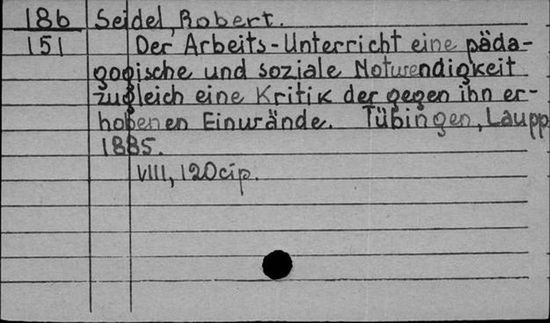 186 Seidel, Robert.
151 Der Arbeits-Unterricht eine päda-
gogische und soziale Notwendigkeit
zugleich eine Kritik der gegen ihn er-
hobenen Einwände. Tübingen, Laupp
1885.
VIII, 120 cip.